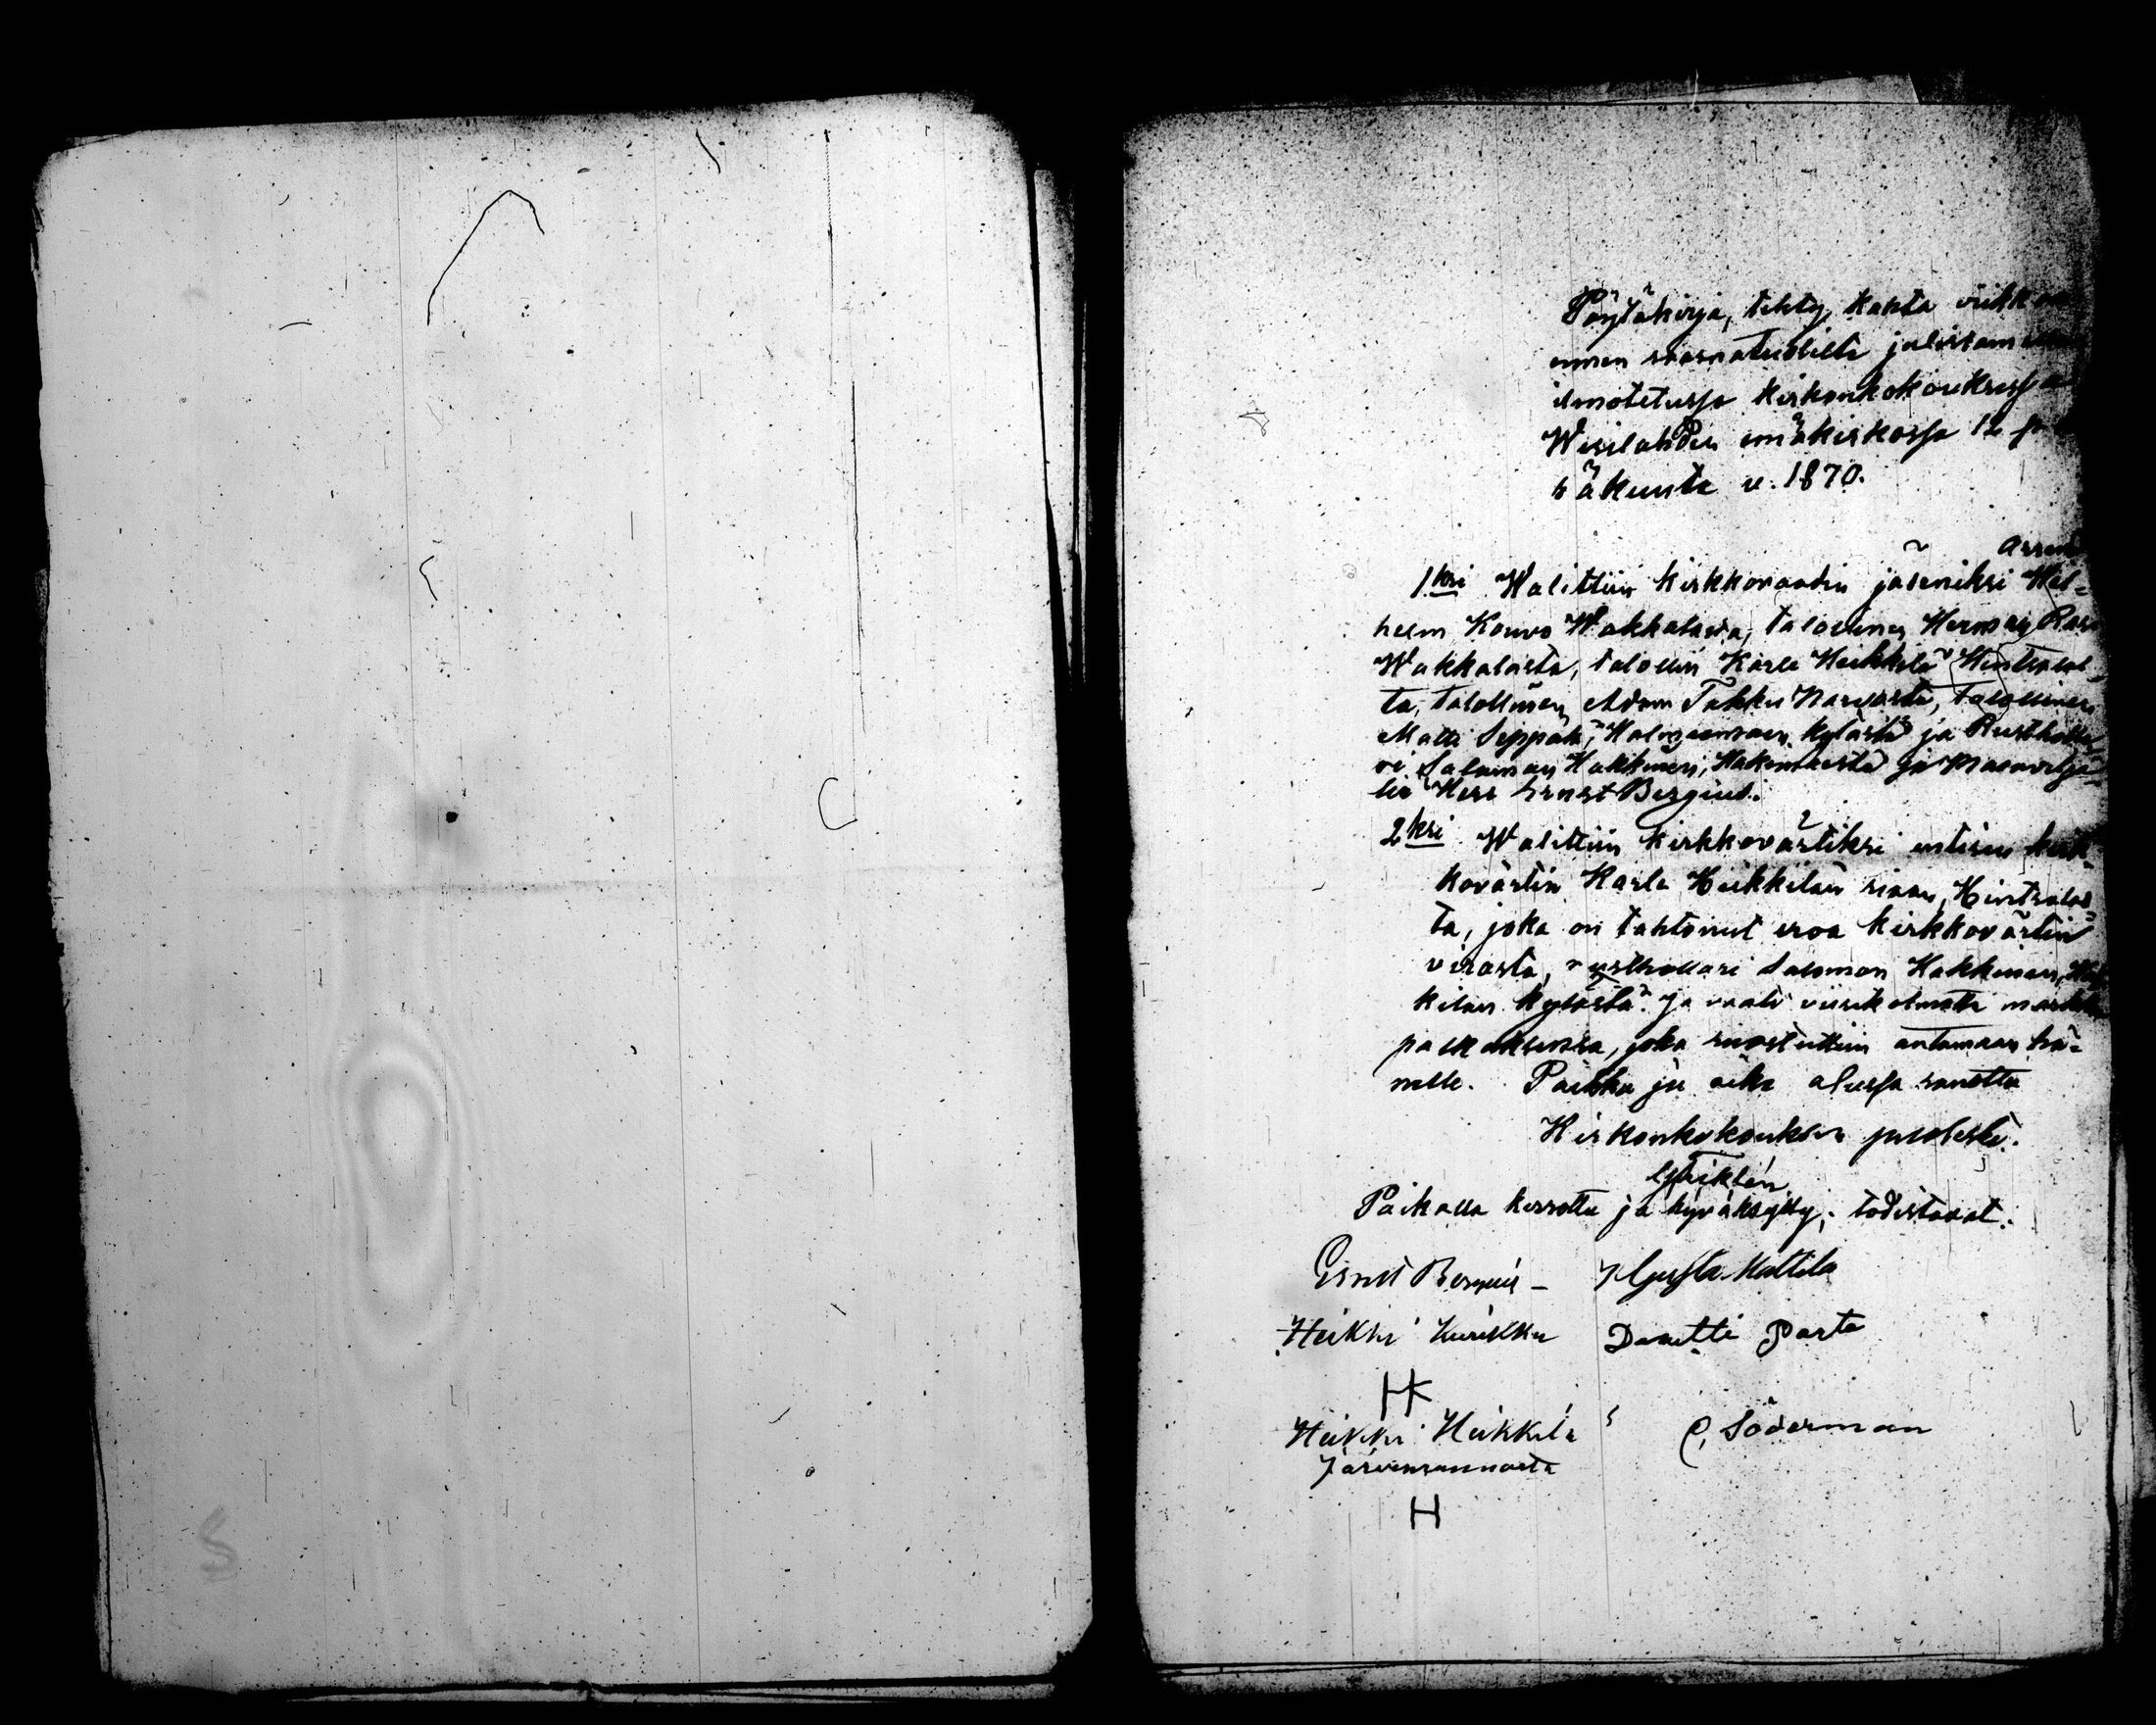 Pöytäkirja, tehty kahta viikkoa
ennen saarnatuolilta julistamalla
ilmotetussa kirkonkokouksessa
Wesilahden emäkirkossa 12 p.
käkuuta v. 1870.
Arren
1ksi Walittiin kirkkoraadin jäseniksi Wil-
helm Kouvo Wakkalasta, talollinen Herman Rasi
Wakkalasta, talollin Karle Heikkilä Hintsalas-
ta, talollinen Adam Takku Narvasta, talollinen
Matti Seppälä, Halmeenmaen kylästä ja Rusthollar
ri Salomon Hakkinen, Hakenkaesta ja Maanvilje-
liä Herr Ernst Bergius.
2ksi Walittiin kirkkovärtiksi entisen kirk-
kovärtin Karle Heikkilän siaan, Hintsalas-
ta, joka on tahtonut eroa kirkkovärtin
virasta, rusthollari Salomon Hakkinen,
kilan kylästä ja vaati viisikolmatta markkaa
palkaksensa, joka suostuttiin antamaan hä-
nelle. Paikka ja aika alussa sanottu
Kirkonkokouksen puolesta.
Paikalla kerrottu ja hyväksytty, todistavat.
Ernst Bergius – Gusta Mattila
Heikki Kurikka Danetti Parta
HK
Heikki Heikkilä C, Söderman
Järvenrannasta
H